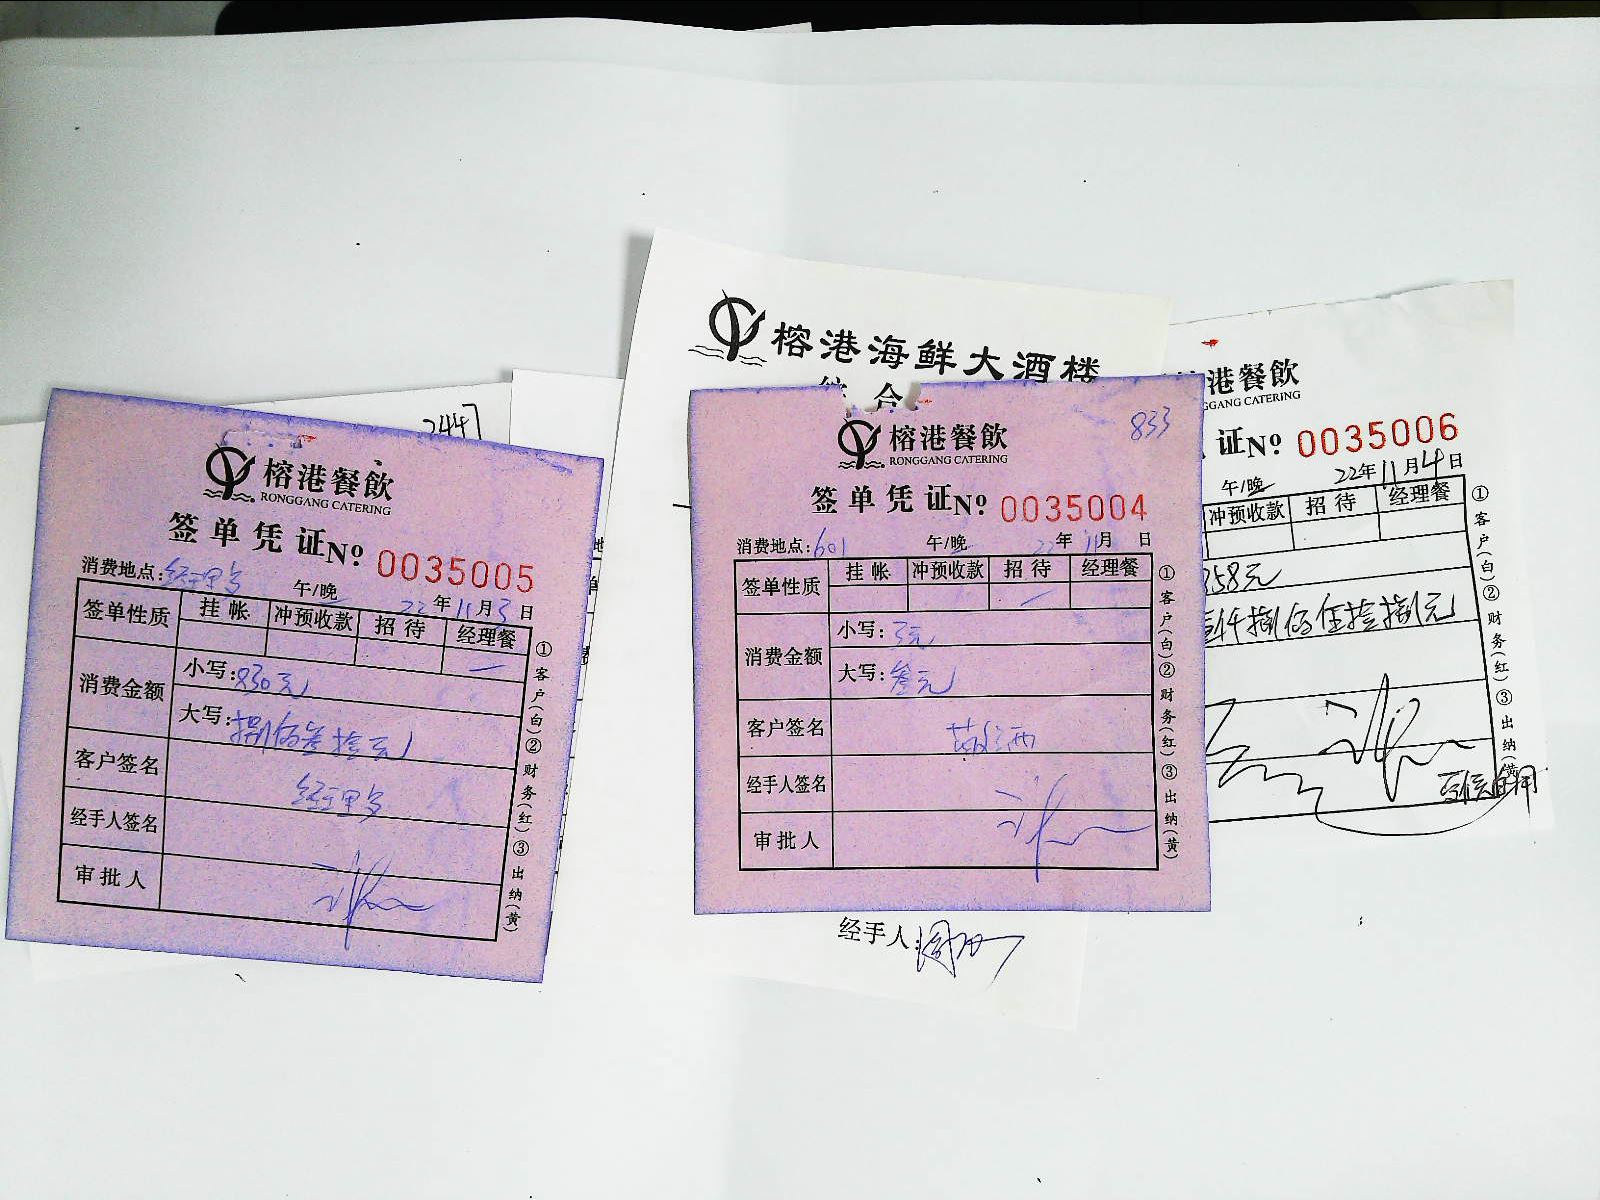 2447
榕港餐飲
RONGGANG CATERING
签单凭证No 0035005
消费地点:经理餐 午/晚 22年11月3日
签单性质 挂帐 冲预收款 招待 经理餐
消费金额 小写:830元
大写:捌佰叁拾元
客户签名 经理餐
经手人签名
审批人
①客户(白)②财务(红)③出纳(黄)
榕港海鲜大酒楼
833
榕港餐飲
RONGGANG CATERING
签单凭证No 0035004
消费地点:601 午/晚 22年11月 日
签单性质 挂帐 冲预收款 招待 经理餐
消费金额 小写:3元
大写:叁元
客户签名
经手人签名
审批人
①客户(白)②财务(红)③出纳(黄)
经手人:
港餐飲
GGANG CATERING
证No 0035006
午/晚 22年11月4日
冲预收款 招待 经理餐
858元
壹仟捌佰伍拾捌元
①客户(白)②财务(红)③出纳(黄)